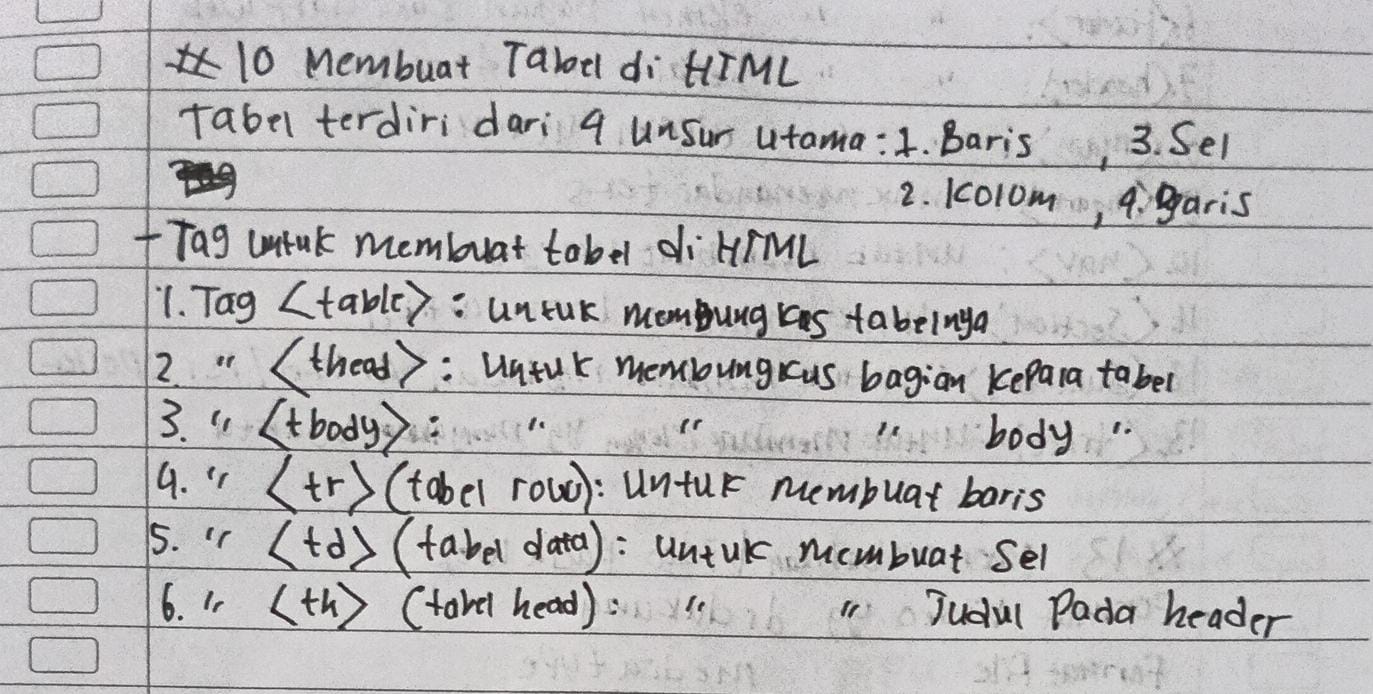 # 10 Membuat Tabel di HTML
Tabel terdiri dari 4 unsur utama : 1. Baris , 3. Sel
2. Kolom , 4. garis
- Tag untuk membuat tabel di HTML
1. Tag <table> : untuk membungkus tabelnya
2. " <thead> : untuk membungkus bagian kepala tabel
3. " <tbody> : " " " body "
4. " <tr> (tabel row) : untuk membuat baris
5. " <td> (tabel data) : untuk membuat Sel
6. " <th> (tabel head) : " " Judul Pada header